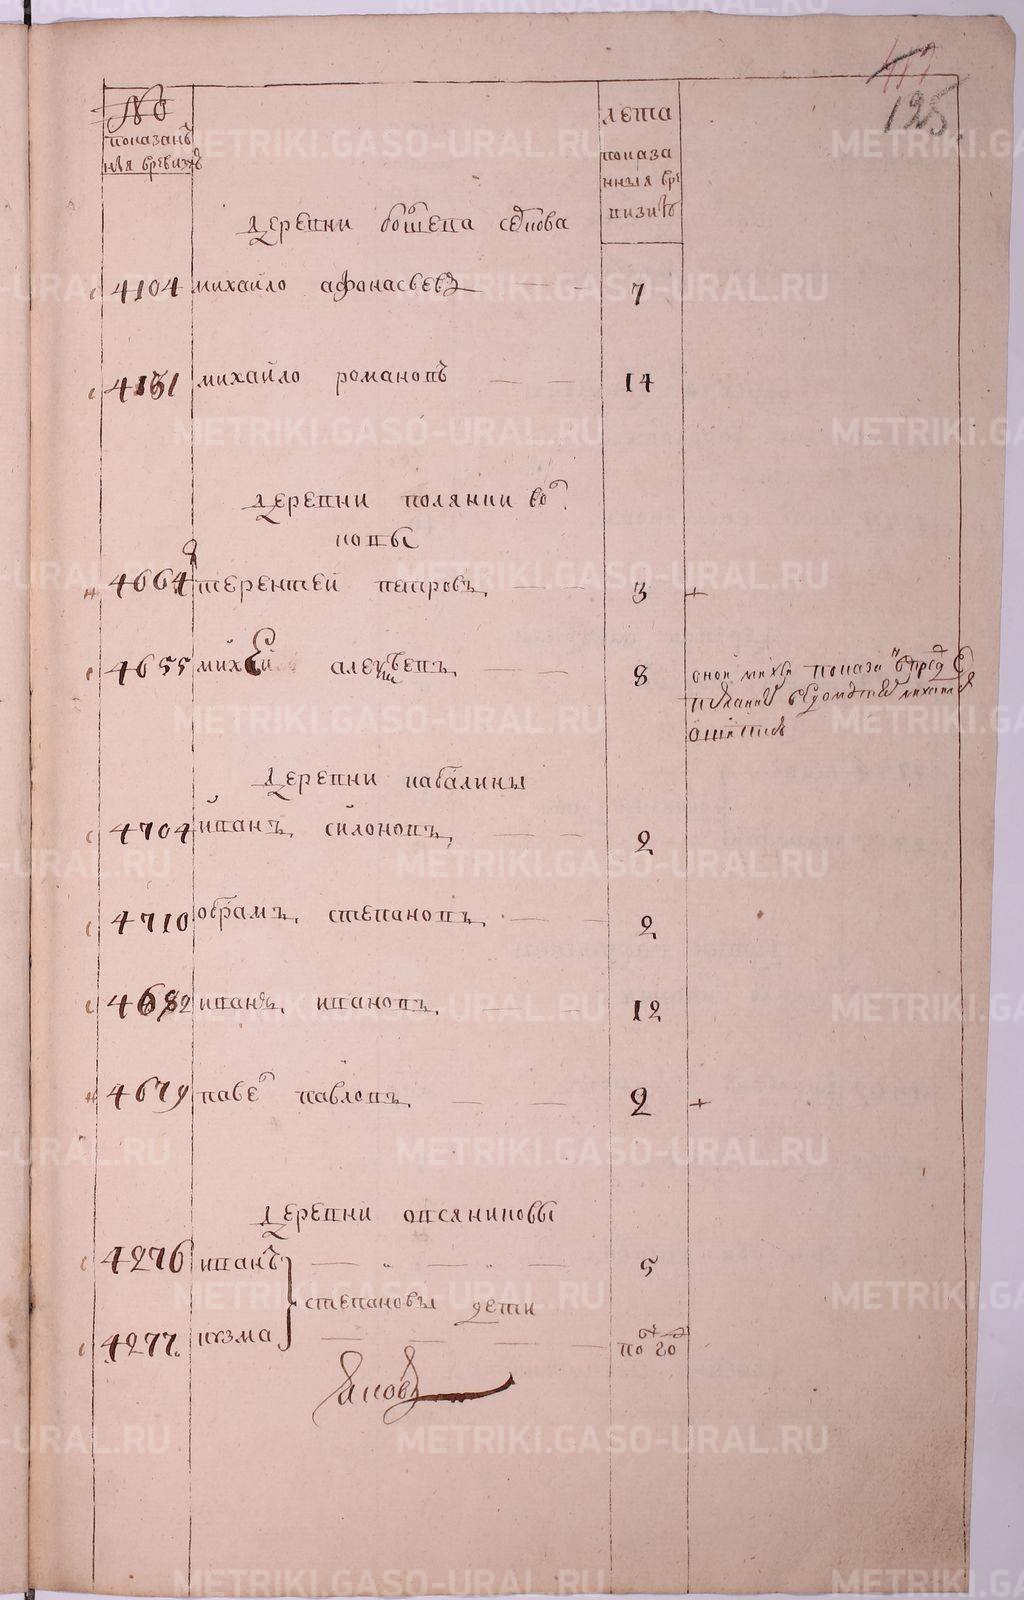 117
125.
№
показан
ныя вревизъ
лета
показа
нныя вре
визиѣ
деревни
4104 михайло афонасьевъ 7
4151 михайло романовъ 14
деревни полянки
4664 терентей петровъ 3 +
4655 михей 8 оной михей показа
ошипкѣ
деревни кабалины
4704 иванъ силоновъ 2
4710 обрамъ степановъ 2
4682 иванъ ивановъ 12
4679 паве павловъ 2 +
деревни овсяниковы
4276 иванъ 5
степановы дети
4277. кузма по 20
METRIKI.GASO-URAL.RU